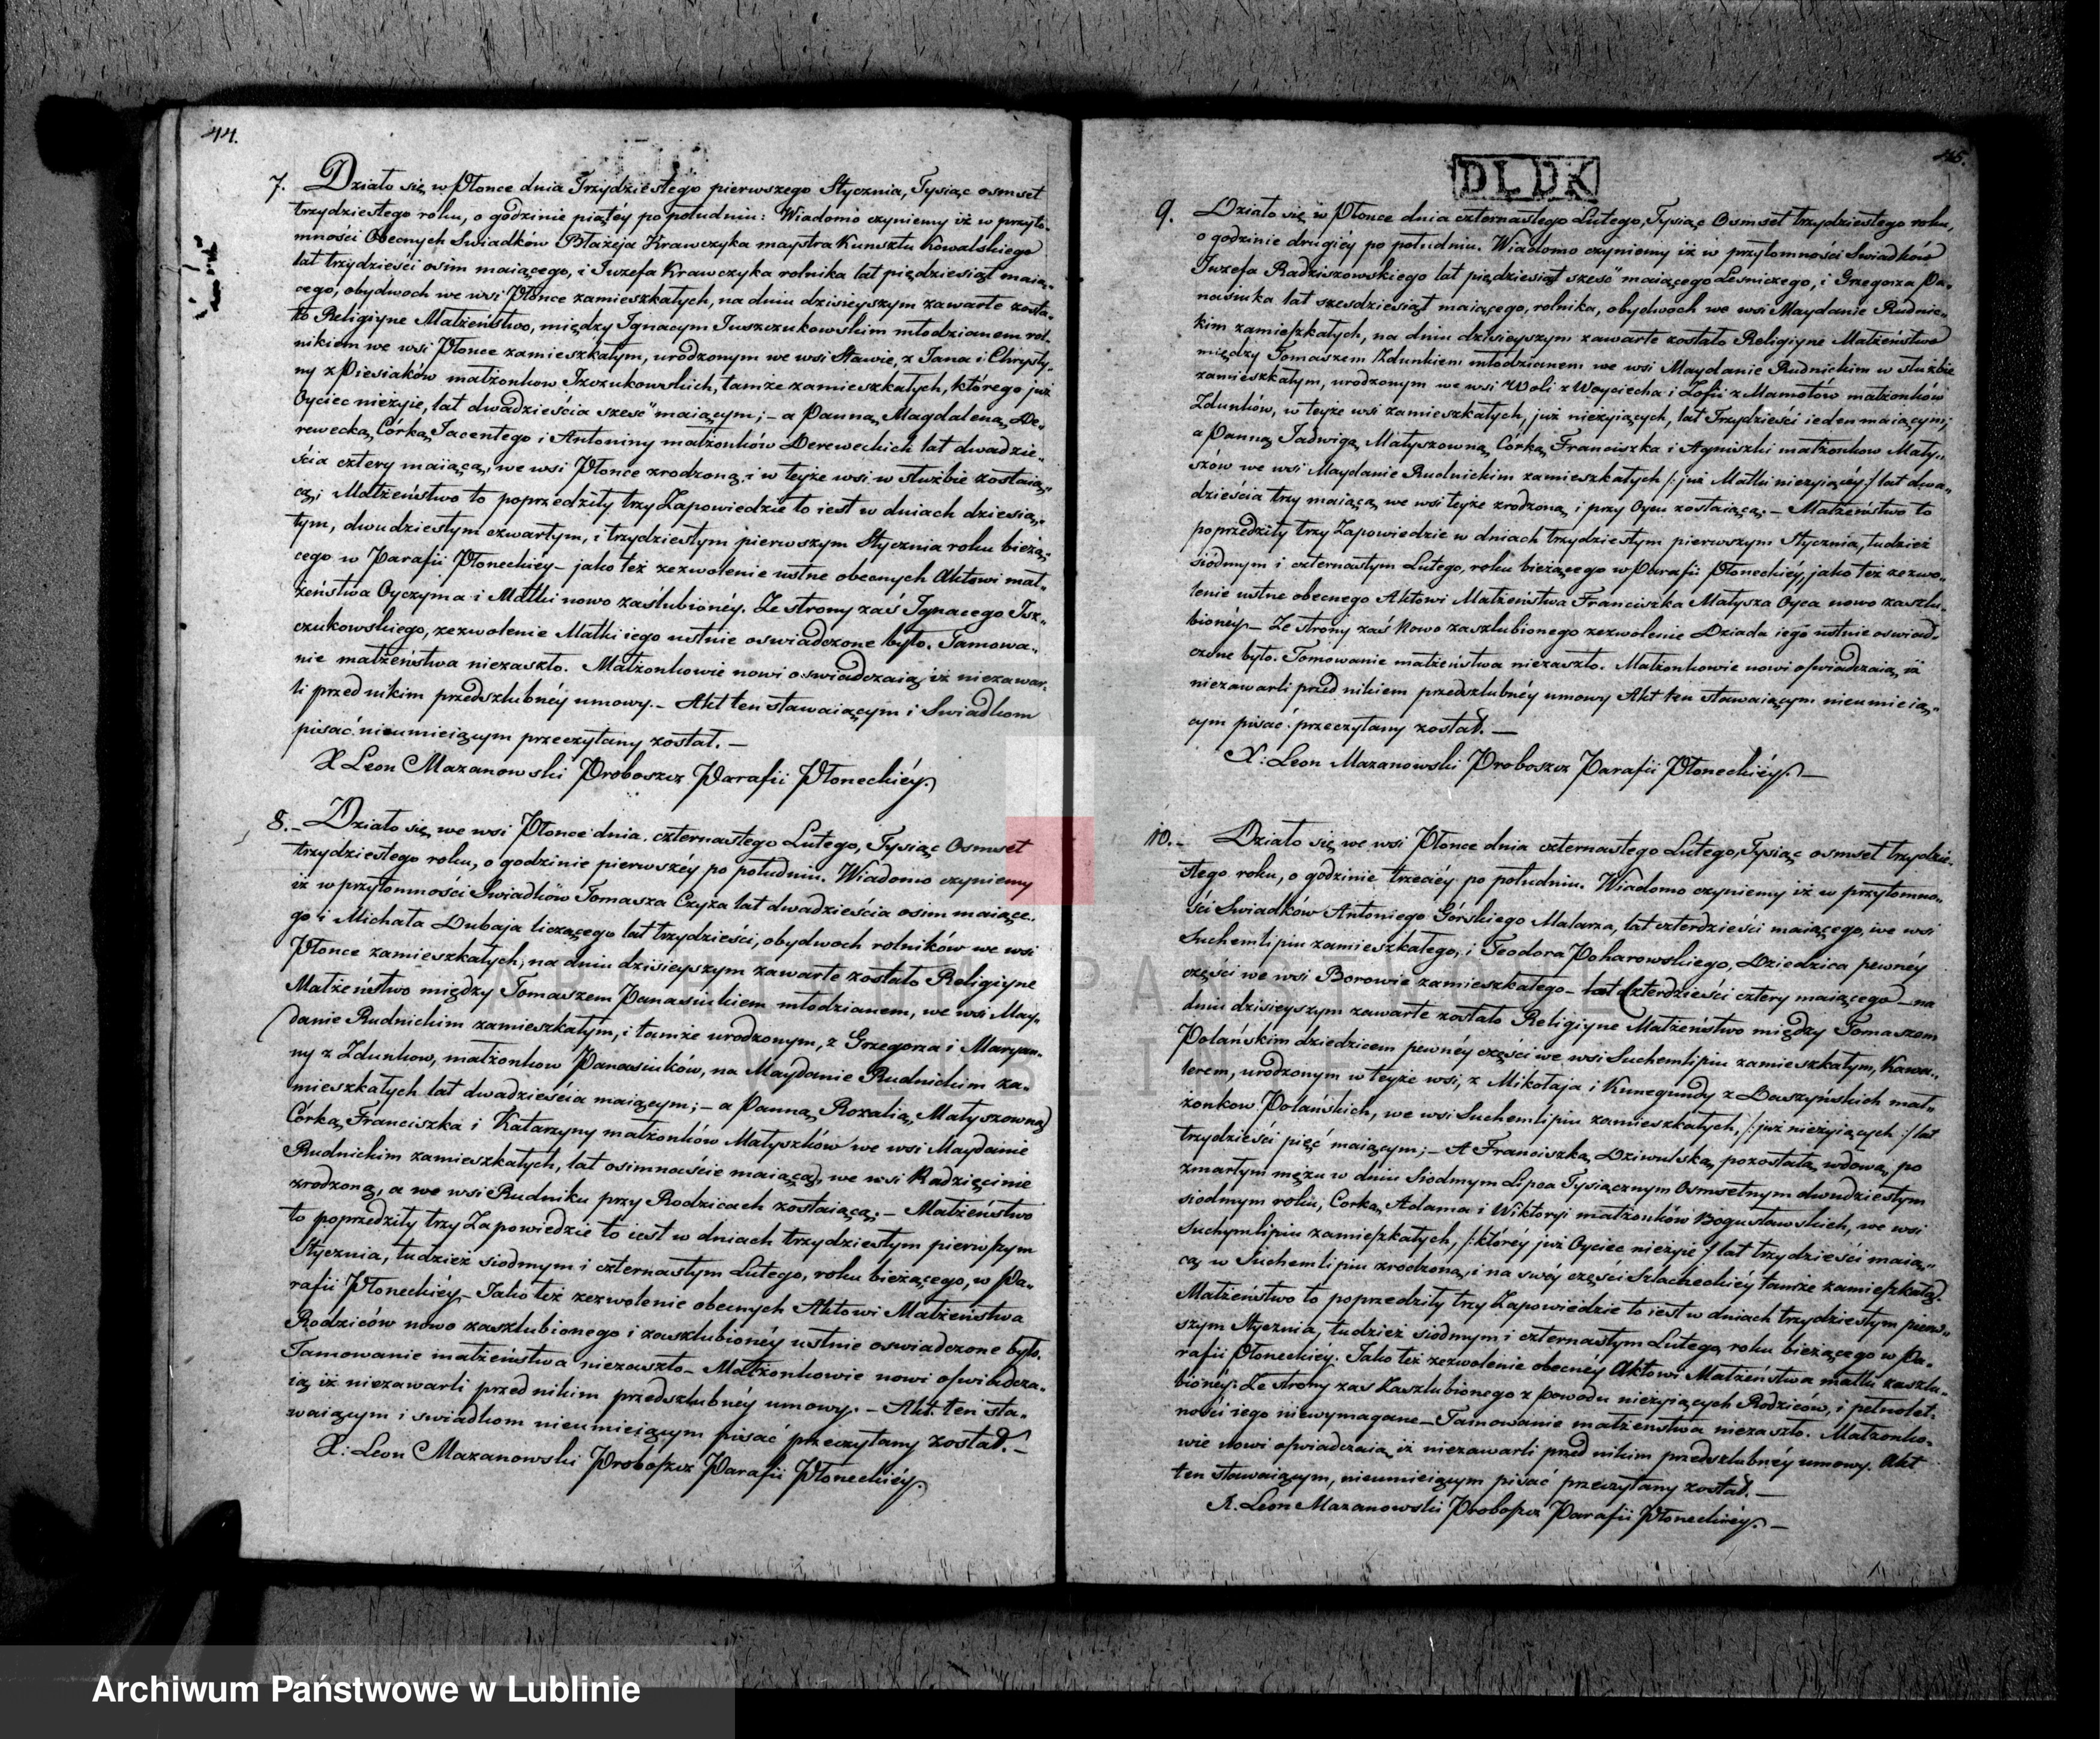 44.
7. Działo się w Płonce dnia Trzydziestego pierwszego Stycznia, Tysiąc osmset
trzydziestego roku, o godzinie piątéy po południu: Wiadomo czyniemy iż w przyto-
mności Obecnych Swiadków Błażeja Krawczyka maystra Kunsztu Kowalskiego
lat trzydzieści osim maiącego, i Iuzefa Krawczyka rolnika lat pięćdziesiąt maią-
cego, obydwoch we wsi Płonce zamieszkałych, na dniu dzisieyszym zawarte zosta-
ło Religiyne Małżeństwo, między Ignacym Iuszczukowskim młodzianem rol-
nikiem we wsi Płonce zamieszkałym, urodzonym we wsi Stawie, z Iana i Chrysty-
ny z Piesiaków małżonkow Iszczukowskich, tamże zamieszkałych, którego już
Oyciec nieżyie, lat dwadzieścia sześć maiącym; – a Panną Magdaleną De-
rewecką Córką Iacentego i Antoniny małżonków Dereweckich lat dwadzie-
ścia cztery maiącą, we wsi Płonce zrodzoną i w teyże wsi w służbie zostaią-
cą; Małżeństwo to poprzedziły trzy Zapowiedzie to iest w dniach dziesią-
tym, dwudziestym czwartym, i trzydziestym pierwszym Stycznia roku bieżą-
cego w Parafii Płoneckiéy – jako też zezwolenie ustne obecnych Aktowi mał-
żeństwa Oyczyma i Matki nowo zaślubionéy. Ze strony zaś Ignacego Isz-
czukowskiego, zezwolenie Matki iego ustnie oswiadczone było. Tamowa-
nie małżeństwa niezaszło. Małżonkowie nowi oswiadczaią iż niezawar-
li przed nikim przedszlubnéy umowy. – Akt ten stawaiącym i Swiadkom
pisać nieumieiącym przeczytany został. –
X Leon Mazanowski Proboszcz Parafii Płoneckiéy.
8. – Działo się we wsi Płonce dnia czternastego Lutego, Tysiąc Osmset
trzydziestego roku, o godzinie pierwszéy po południu. Wiadomo czyniemy
iż w przytomności Swiadków Tomasza Czyża lat dwadzieścia osim maiące-
go i Michała Dubaja liczącego lat trzydzieści, obydwoch rolników we wsi
Płonce zamieszkałych, na dniu dzisieyszym zawarte zostało Religiyne
Małżeństwo między Tomaszem Panasiukiem młodzianem, we wsi May-
danie Rudnickim zamieszkałym, i tamże urodzonym, z Grzegorza i Maryan-
ny z Zdunkow, małżonkow Panasiuków, na Maydanie Rudnickim za-
mieszkałych lat dwadzieścia maiącym; – a Panną Rozalią Matyszowną
Córką Franciszka i Katarzyny małżonków Matyszków we wsi Maydanie
Rudnickim zamieszkałych, lat osimnaście maiącą, we wsi Radzięcinie
zrodzoną, a we wsi Rudniku przy Rodzicach zostaiącą. – Małżeństwo
to poprzedziły trzy Zapowiedzie to iest w dniach trzydziestym pierwszym
Stycznia, tudzież siodmym i czternastym Lutego, roku bieżącego, w Pa-
rafii Płoneckiéy – Iako też zezwolenie obecnych Aktowi Małżeństwa
Rodziców nowo zaszlubionego i zaszlubionéy ustnie oswiadczone było.
Tamowanie małżeństwa niezaszło – Małżonkowie nowi oswiadcza-
ią iż niezawarli przed nikim przedszlubnéy umowy. – Akt ten sta-
waiącym i swiadkom nieumieiącym pisać przeczytany został. –
X: Leon Mazanowski Proboszcz Parafii Płoneckiéy.
DLDK
45.
9. Działo się w Płonce dnia czternastego Lutego, Tysiąc Osmset trzydziestego roku,
o godzinie drugiéy po południu. Wiadomo czyniemy iż w przytomności Swiadków
Iuzefa Radziszowskiego lat pięćdziesiąt sześć maiącego Leśniczego, i Grzegorza Pa-
nasiuka lat szesdziesiąt maiącego, rolnika, obydwoch we wsi Maydanie Rudnic-
kim zamieszkałych, na dniu dzisieyszym zawarte zostało Religiyne Małżeństwo
między Tomaszem Zdunkiem młodzianem we wsi Maydanie Rudnickim w służbie
zamieszkałym, urodzonym we wsi Woli z Woyciecha i Zofii z Mamotów małżonków
Zdunków, w teyże wsi zamieszkałych, już nieżyiących, lat Trzydzieści ieden maiącym;
a Panną Iadwigą Matyszowną, Córką Franciszka i Agniszki małżonkow Maty-
szów we wsi Maydanie Rudnickim zamieszkałych /: już Matki nieżyiącéy :/ lat dwa-
dzieścia trzy maiącą we wsi teyże zrodzoną i przy Oycu zostaiącą. – Małżeństwo to
poprzedziły trzy Zapowiedzie w dniach trzydziestym pierwszym Stycznia, tudzież
siódmym i czternastym Lutego, roku bieżącego w Parafii Płoneckiéy, jako też zezwo-
lenie ustne obecnego Aktowi Małżeństwa Franciszka Matysza Oyca nowo zaszlu-
bionéy. – Ze strony zaś Nowo zaszlubionego zezwolenie Dziada iego ustnie oswiad-
czone było. Tomowanie małżeństwa niezaszło. Małżonkowie nowi oswiadczaią, iż
niezawarli przed nikiem przedszlubnéy umowy Akt ten stawaiącym nieumieią-
cym pisać przeczytany został. –
X: Leon Mazanowski Proboszcz Parafii Płoneckiéy. –
10. – Działo się we wsi Płonce dnia czternastego Lutego, Tysiąc osmset trzydzie-
stego roku, o godzinie trzeciéy po południu. Wiadomo czyniemy iż w przytomno-
ści Swiadków Antoniego Górskiego Malarza, lat czterdzieści maiącego, we wsi
Suchemlipiu zamieszkałego, i Teodora Poharowskiego, Dziedzica pewnéy
części we wsi Borowie zamieszkałego – lat czterdzieści cztery maiącego – na
dniu dzisieyszym zawarte zostało Religiyne Małżeństwo między Tomaszem
Polańskim dziedzicem pewnéy części we wsi Suchemlipiu zamieszkałym, Kawa-
lerem, urodzonym w teyże wsi, z Mikołaja i Kunegundy z Daszyńskich mał-
żonkow Polańskich, we wsi Suchemlipiu zamieszkałych, /: już nieżyiących :/ lat
trzydzieści pięć maiącym; – A Franciszką Dziwulską pozostałą wdową po
zmarłym mężu w dniu Siodmym Lipca Tysiącznym Osmsetnym dwudziestym
siodmym roku, Corką Adama i Wiktoryi małżonków Bogusławskich, we wsi
Suchymlipiu zamieszkałych, /: któréy już Oyciec nieżyie :/ lat trzydzieści maią-
cą w Suchemlipiu zrodzoną i na swéy części Szlacheckiéy tamże zamieszkałą.
Małżeństwo to poprzedziły trzy Zapowiedzie to iest w dniach trzydziestym pierw-
szym Stycznia, tudzież siodmym i czternastym Lutego, roku bieżącego w Pa-
rafii Płoneckiey. Iako też zezwolenie obecnéy Aktowi Małżeństwa matki zaszlu-
bionéy. Ze strony zaś Zaszlubionego z powodu nieżyiących Rodziców, i pełnolet-
ności iego niewymagane – Tamowanie małżenstwa niezaszło. Małżonko-
wie nowi oswiadczaią iż niezawarli przed nikim przedszlubnéy umowy. Akt
ten stawaiącym, nieumieiącym pisać przeczytany został. –
X. Leon Mazanowski Proboszcz Parafii Płoneckiéy. –
ARCHIWUM PAŃSTWOWE
W LUBLINIE
Archiwum Państwowe w Lublinie